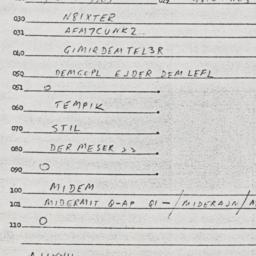 030 N8IXTER
031 AFM7CUNK2
040 GIMIRDEMTEL3R
050 DEMGCPL EJDER DEMLEFL
051 0
060 TEMPIK
070 STIL
080 DER MESER 22
090 0
100 MIDEM
101 MIDERMIT Q-AP QI-/MIDERAJN/
110 0